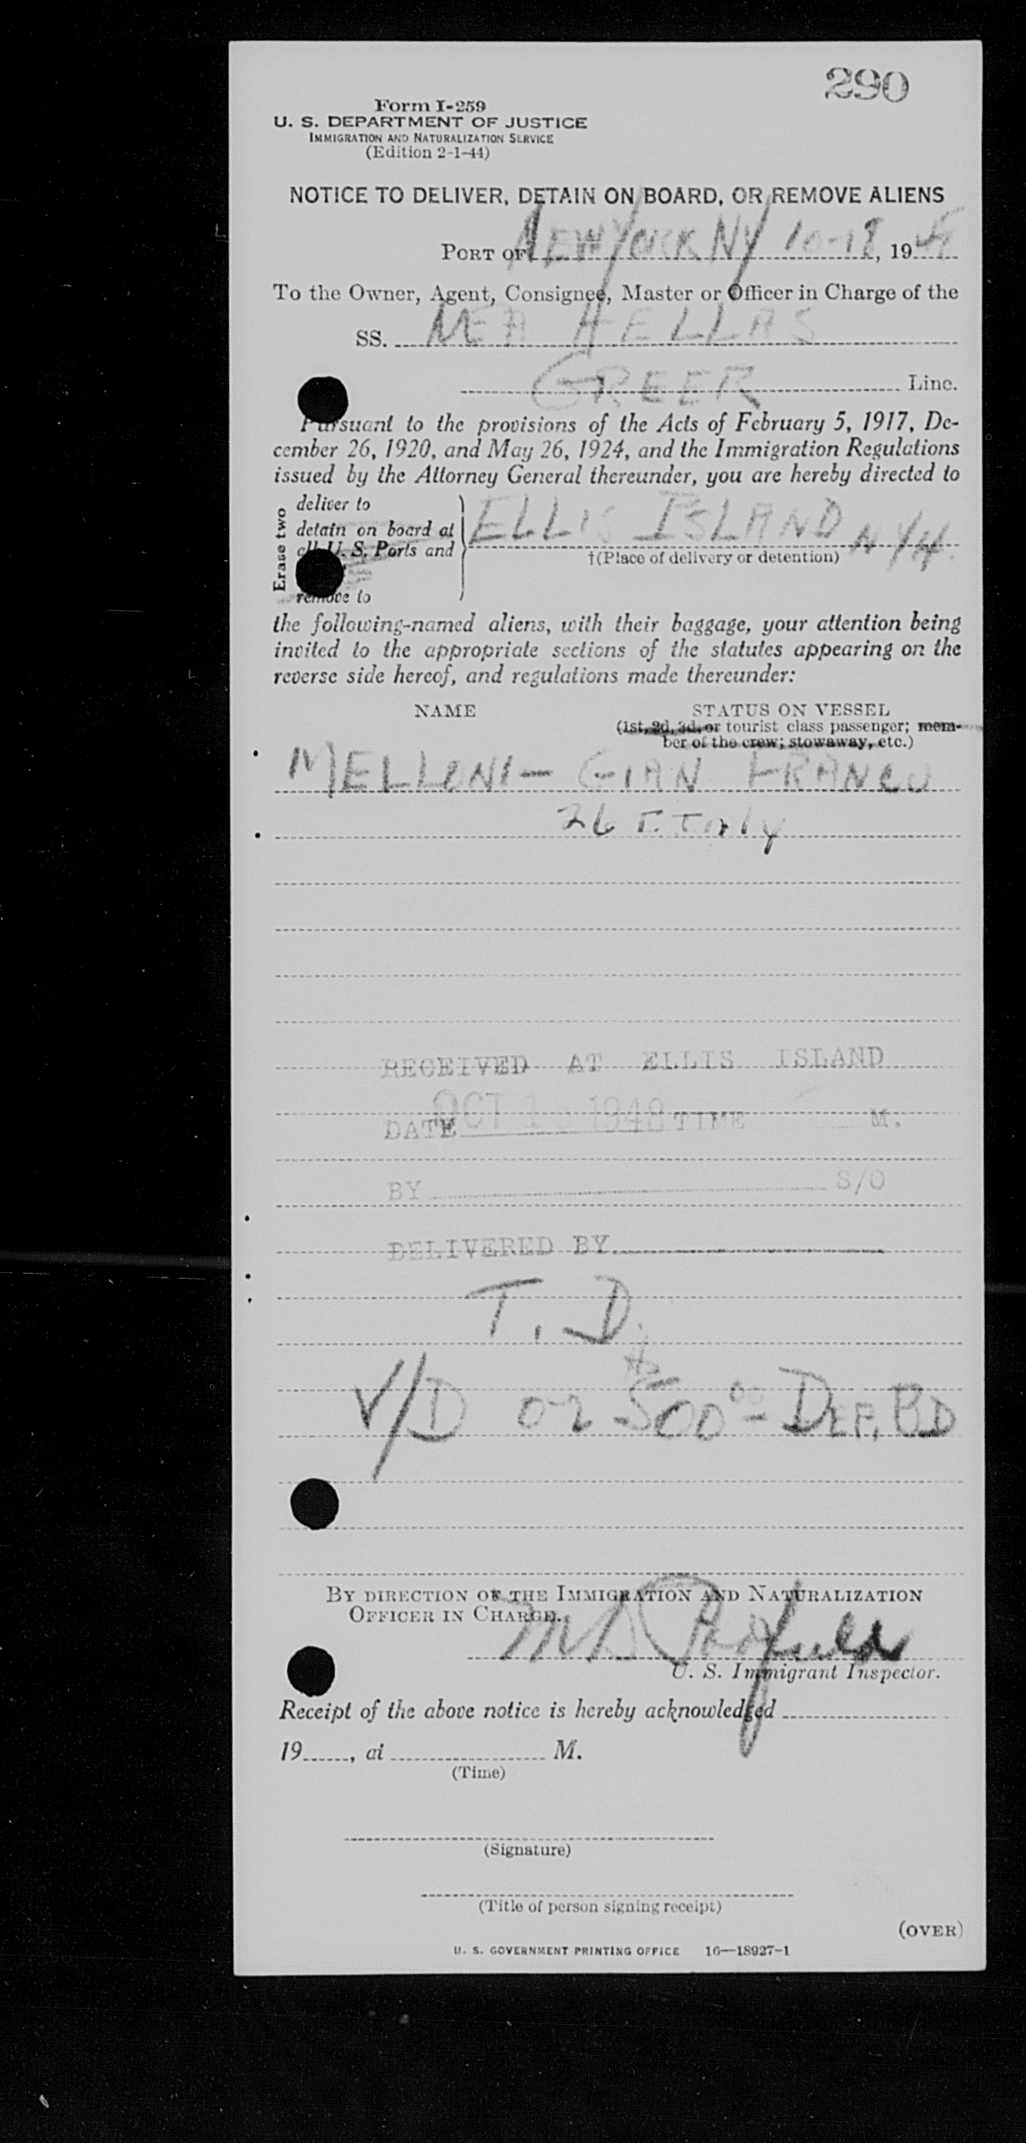 290
Form I-259
U. S. DEPARTMENT OF JUSTICE
IMMIGRATION AND NATURALIZATION SERVICE
(Edition 2-1-44)
NOTICE TO DELIVER, DETAIN ON BOARD, OR REMOVE ALIENS
PORT OF NEW YORK NY 10-18, 1948
To the Owner, Agent, Consignee, Master or Officer in Charge of the
SS. NEA HELLAS
GREEK Line.
Pursuant to the provisions of the Acts of February 5, 1917, De-
cember 26, 1920, and May 26, 1924, and the Immigration Regulations
issued by the Attorney General thereunder, you are hereby directed to
Erase two
deliver to
detain on board at
all U. S. Ports and
remove to
ELLIS ISLAND NYH.
†(Place of delivery or detention)
the following-named aliens, with their baggage, your attention being
invited to the appropriate sections of the statutes appearing on the
reverse side hereof, and regulations made thereunder:
NAME STATUS ON VESSEL
(1st, 2d, 3d, or tourist class passenger; mem-
ber of the crew; stowaway, etc.)
MELLONI - GIAN FRANCO
26 T. Italy
RECEIVED AT ELLIS ISLAND
DATE OCT 1 1948 TIME M.
BY S/O
DELIVERED BY
T. D.
V/D or $500.00 - DEP. BD
BY DIRECTION OF THE IMMIGRATION AND NATURALIZATION
OFFICER IN CHARGE.
U. S. Immigrant Inspector.
Receipt of the above notice is hereby acknowledged
19, at M.
(Time)
(Signature)
(Title of person signing receipt)
(OVER)
U. S. GOVERNMENT PRINTING OFFICE 16—18927-1